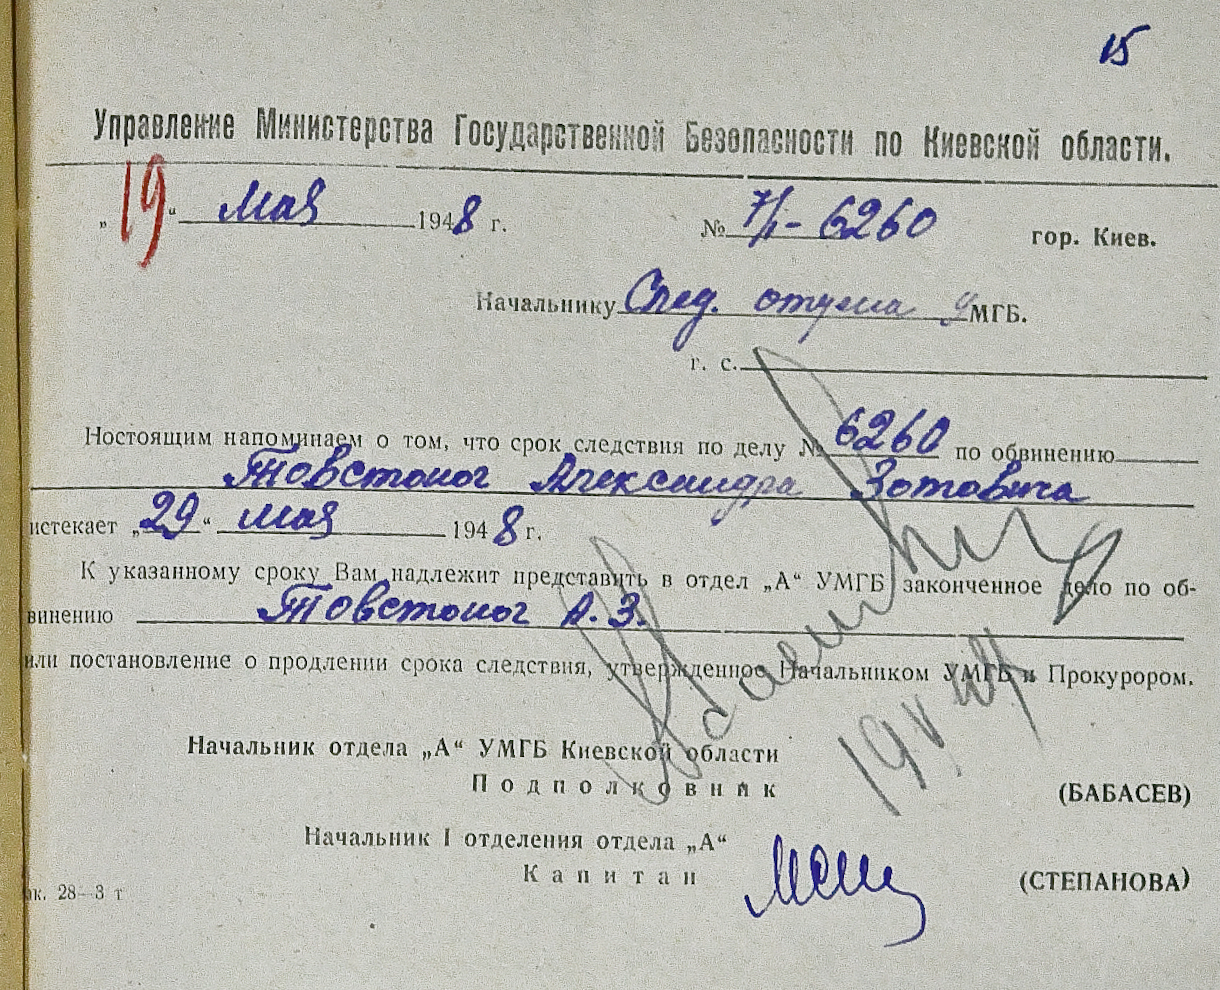 15
Управление Министерства Государственной Безопасности по Киевской области.
„19“ мая 1948 г. № 7/1-6260 гор. Киев.
Начальнику След. отдела УМГБ.
г. с.
Ностоящим напоминаем о том, что срок следствия по делу № 6260 по обвинению
Товстоног Александра Зотовича
истекает „29“ мая 1948 г.
К указанному сроку Вам надлежит представить в отдел „А“ УМГБ законченное дело по об-
винению Товстоног А. З.
или постановление о продлении срока следствия, утвержденное Начальником УМГБ и Прокурором.
Начальник отдела „А“ УМГБ Киевской области
Подполковник (БАБАСЕВ)
Начальник I отделения отдела „А“
Капитан (СТЕПАНОВА)
28—3 т